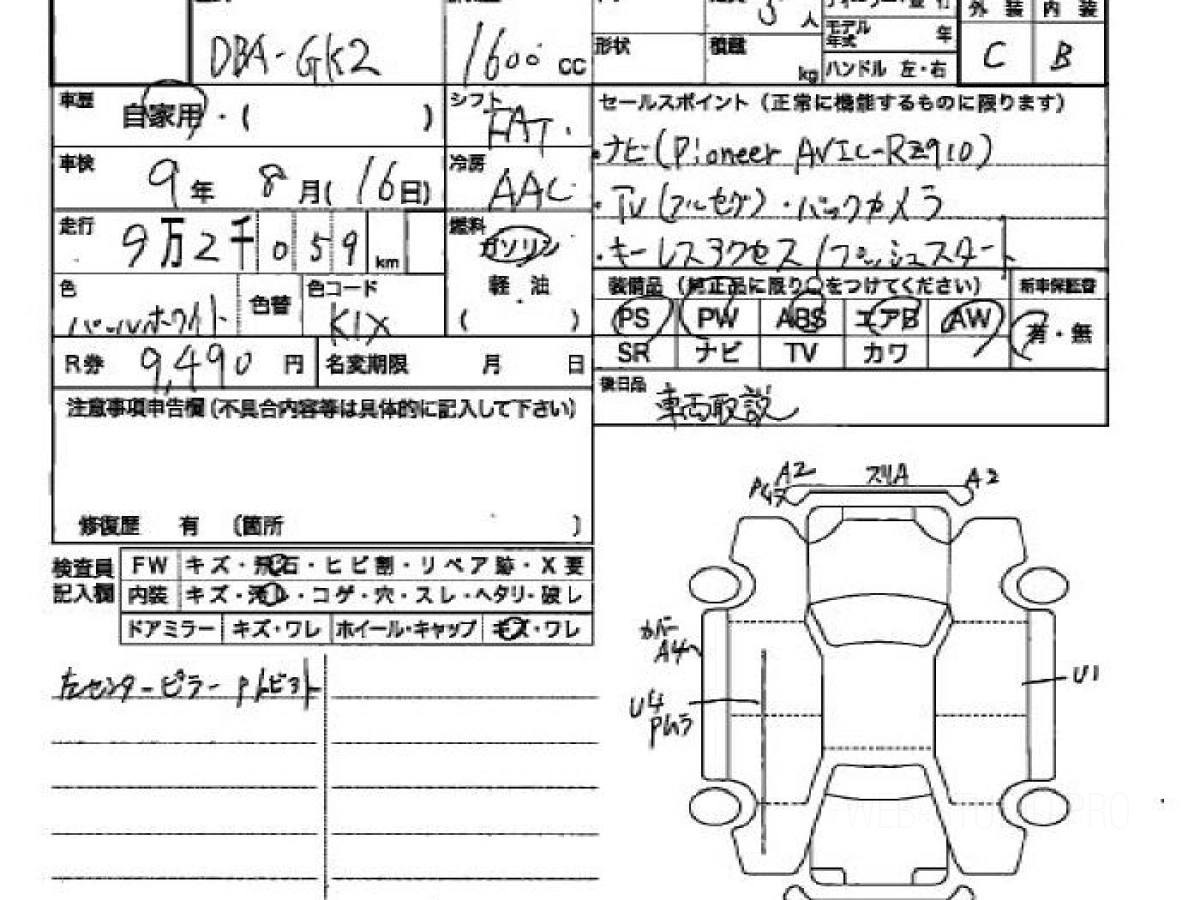 5 人
モデル年式 年
外装 内装
DBA-GK2
1600 cc
形状
積載 kg
ハンドル 左・右
C B
車歴 自家用・( )
シフト FAT
セールスポイント（正常に機能するものに限ります）
・ナビ(Pioneer AVIC-RZ910)
車検 9年 8月(16日)
冷房 AAC
・TV(フルセグ)・バックカメラ
走行 9万2千059km
燃料 ガソリン
・キーレスアクセス/プッシュスタート
軽油
( )
色 パールホワイト
色替
色コード K1X
装備品（純正品に限り○をつけてください）
新車保証書
PS PW ABS エアB AW
有・無
SR ナビ TV カワ
R券 9,490円
名変期限 月 日
後日品 車両取説
注意事項申告欄(不具合内容等は具体的に記入して下さい)
修復歴 有 〔箇所 〕
検査員記入欄
FW キズ・飛石・ヒビ割・リペア跡・X要
内装 キズ・汚レ・コゲ・穴・スレ・ヘタリ・破レ
ドアミラー キズ・ワレ ホイール・キャップ キズ・ワレ
左センターピラー
A2
スリA
A2
カバー
A4
U4
Pムラ
U1